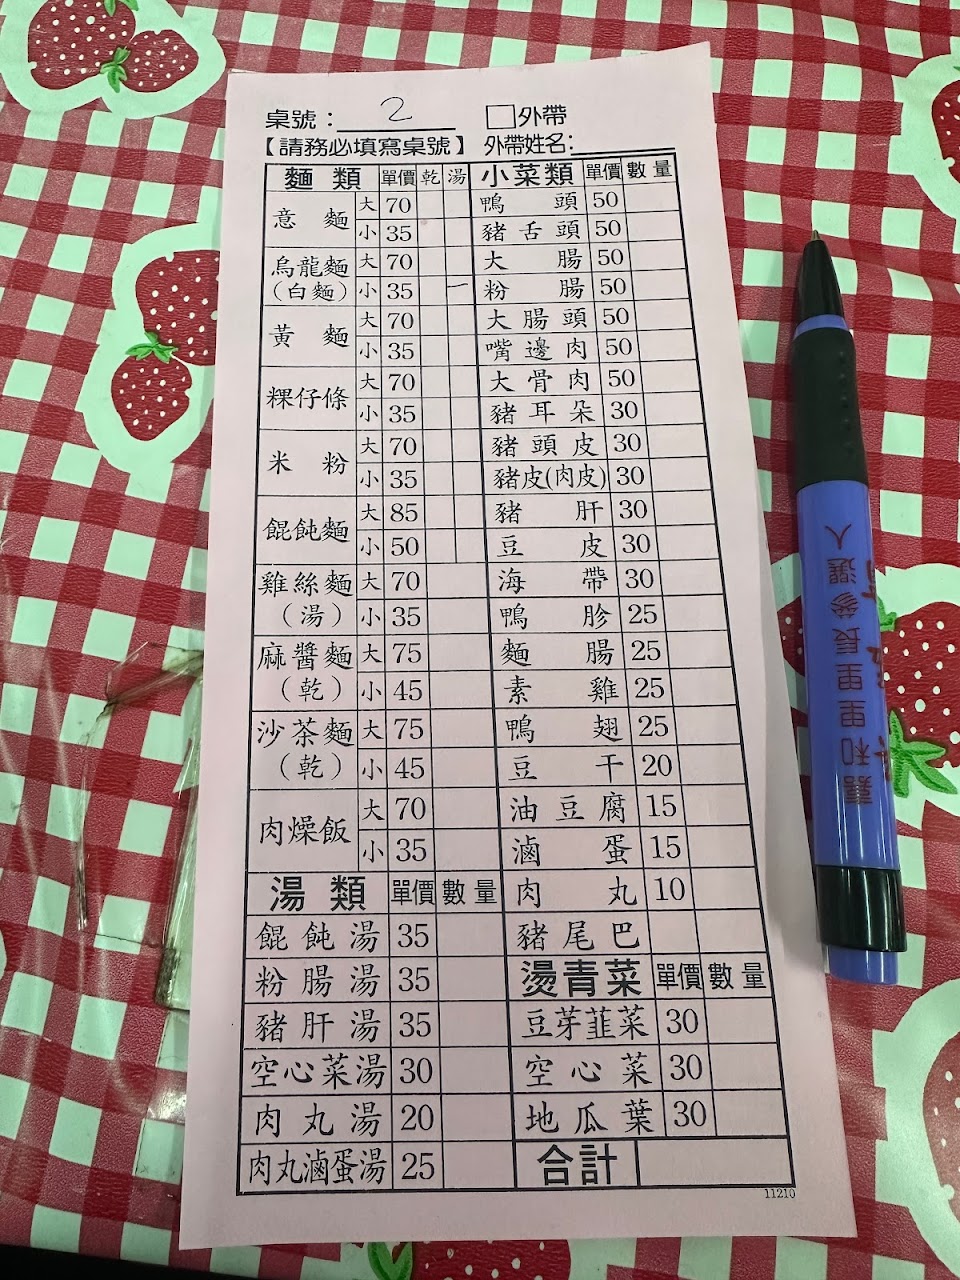 桌號：2 □外帶
【請務必填寫桌號】 外帶姓名：
麵類 單價 乾 湯 小菜類 單價 數量
意麵 大 70 鴨頭 50
小 35 豬舌頭 50
烏龍麵 大 70 大腸 50
(白麵) 小 35 一 粉腸 50
黃麵 大 70 大腸頭 50
小 35 嘴邊肉 50
粿仔條 大 70 大骨肉 50
小 35 豬耳朵 30
米粉 大 70 豬頭皮 30
小 35 豬皮(肉皮) 30
餛飩麵 大 85 豬肝 30
小 50 豆皮 30
雞絲麵 大 70 海帶 30
(湯) 小 35 鴨胗 25
麻醬麵 大 75 麵腸 25
(乾) 小 45 素雞 25
沙茶麵 大 75 鴨翅 25
(乾) 小 45 豆干 20
肉燥飯 大 70 油豆腐 15
小 35 滷蛋 15
湯類 單價 數量 肉丸 10
餛飩湯 35 豬尾巴
粉腸湯 35 燙青菜 單價 數量
豬肝湯 35 豆芽韮菜 30
空心菜湯 30 空心菜 30
肉丸湯 20 地瓜葉 30
肉丸滷蛋湯 25 合計
11210
嘉和里里長參選人